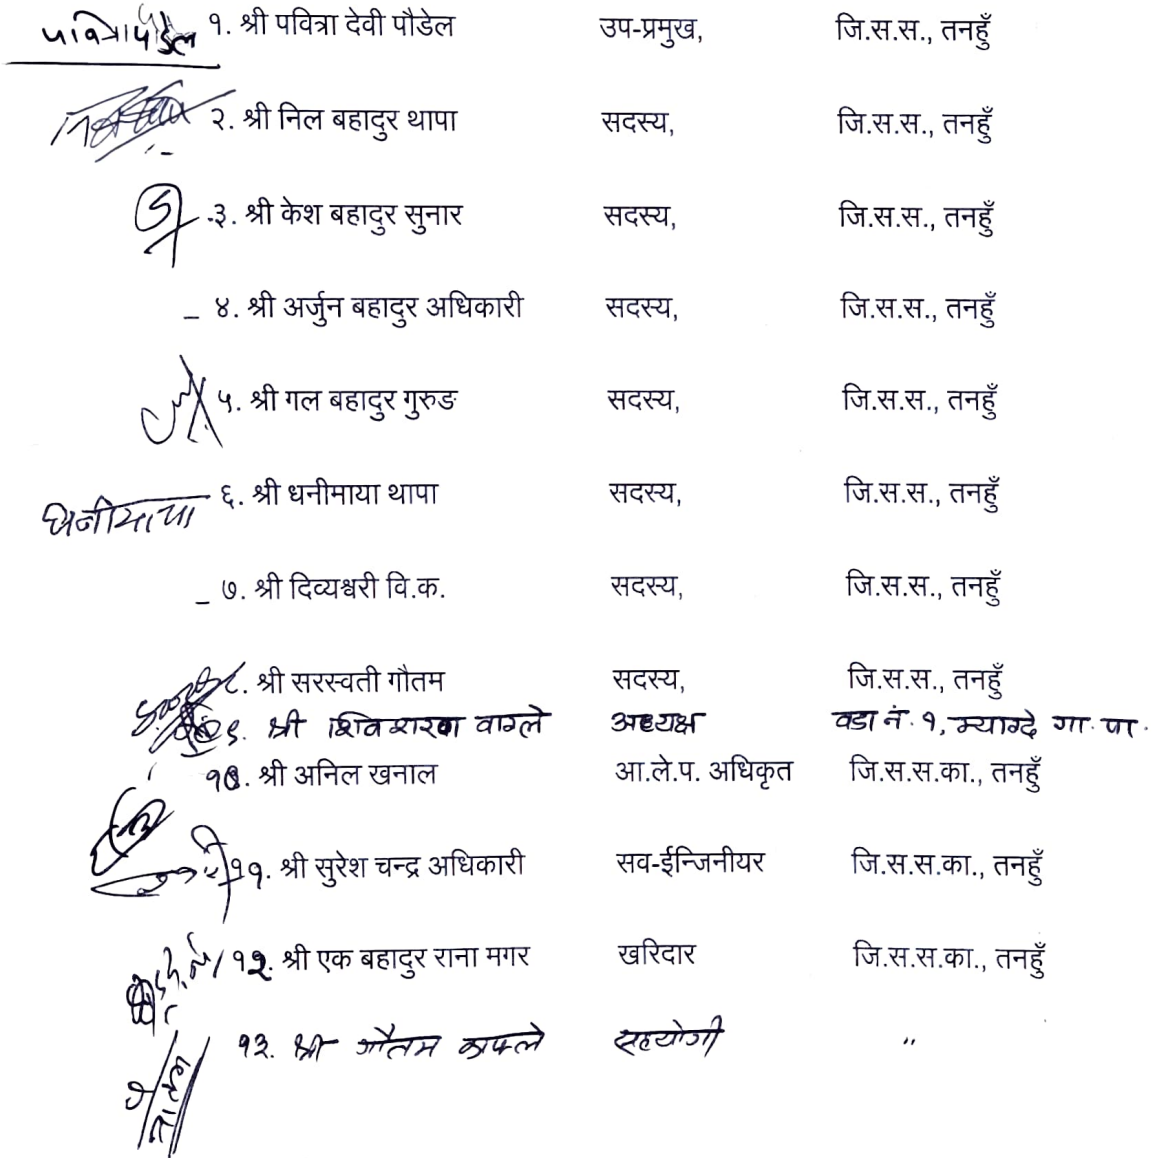 पवित्रा पौडेल १. श्री पवित्रा देवी पौडेल उप-प्रमुख, जि.स.स., तनहुँ
२. श्री निल बहादुर थापा सदस्य, जि.स.स., तनहुँ
३. श्री केश बहादुर सुनार सदस्य, जि.स.स., तनहुँ
४. श्री अर्जुन बहादुर अधिकारी सदस्य, जि.स.स., तनहुँ
५. श्री गल बहादुर गुरुङ सदस्य, जि.स.स., तनहुँ
धनीमाया ६. श्री धनीमाया थापा सदस्य, जि.स.स., तनहुँ
७. श्री दिव्यश्वरी वि.क. सदस्य, जि.स.स., तनहुँ
८. श्री सरस्वती गौतम सदस्य, जि.स.स., तनहुँ
९. श्री शिव शरण वाग्ले अध्यक्ष वडा नं. १, म्याग्दे गा. पा.
१०. श्री अनिल खनाल आ.ले.प. अधिकृत जि.स.स.का., तनहुँ
११. श्री सुरेश चन्द्र अधिकारी सव-ईन्जिनीयर जि.स.स.का., तनहुँ
१२. श्री एक बहादुर राना मगर खरिदार जि.स.स.का., तनहुँ
१३. श्री गौतम काफ्ले सहयोगी "